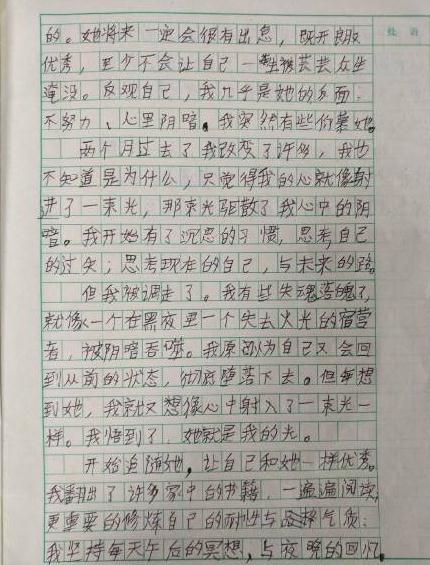 批语
的。她将来一定会很有出息，既开朗
优秀，至少不会让自己一生被芸芸众生
淹没。反观自己，我几乎是她的反面，
不努力、心里阴暗。我突然有些仰慕她。
两个月过去了我改变了许多，我也
不知道是为什么，只觉得我的心就像射
进了一束光，那束光驱散了我心中的阴
暗。我开始有了沉思的习惯，思考自己
的过失；思考现在的自己，与未来的路。
但我被调走了。我有些失魂落魄了，
就像一个在黑夜里一个失去火光的宿营
者，被阴暗吞噬。我原以为自己又会回
到从前的状态，彻底堕落下去。但每想
到她，我就又想像心中射入了一束光一
样。我悟到了，她就是我的光。
开始追随她，让自己和她一样优秀。
我翻出了许多家中的书籍，一遍遍阅读，
更重要的修炼自己的耐性与气质：
我坚持每天午后的冥想，与夜晚的回忆，